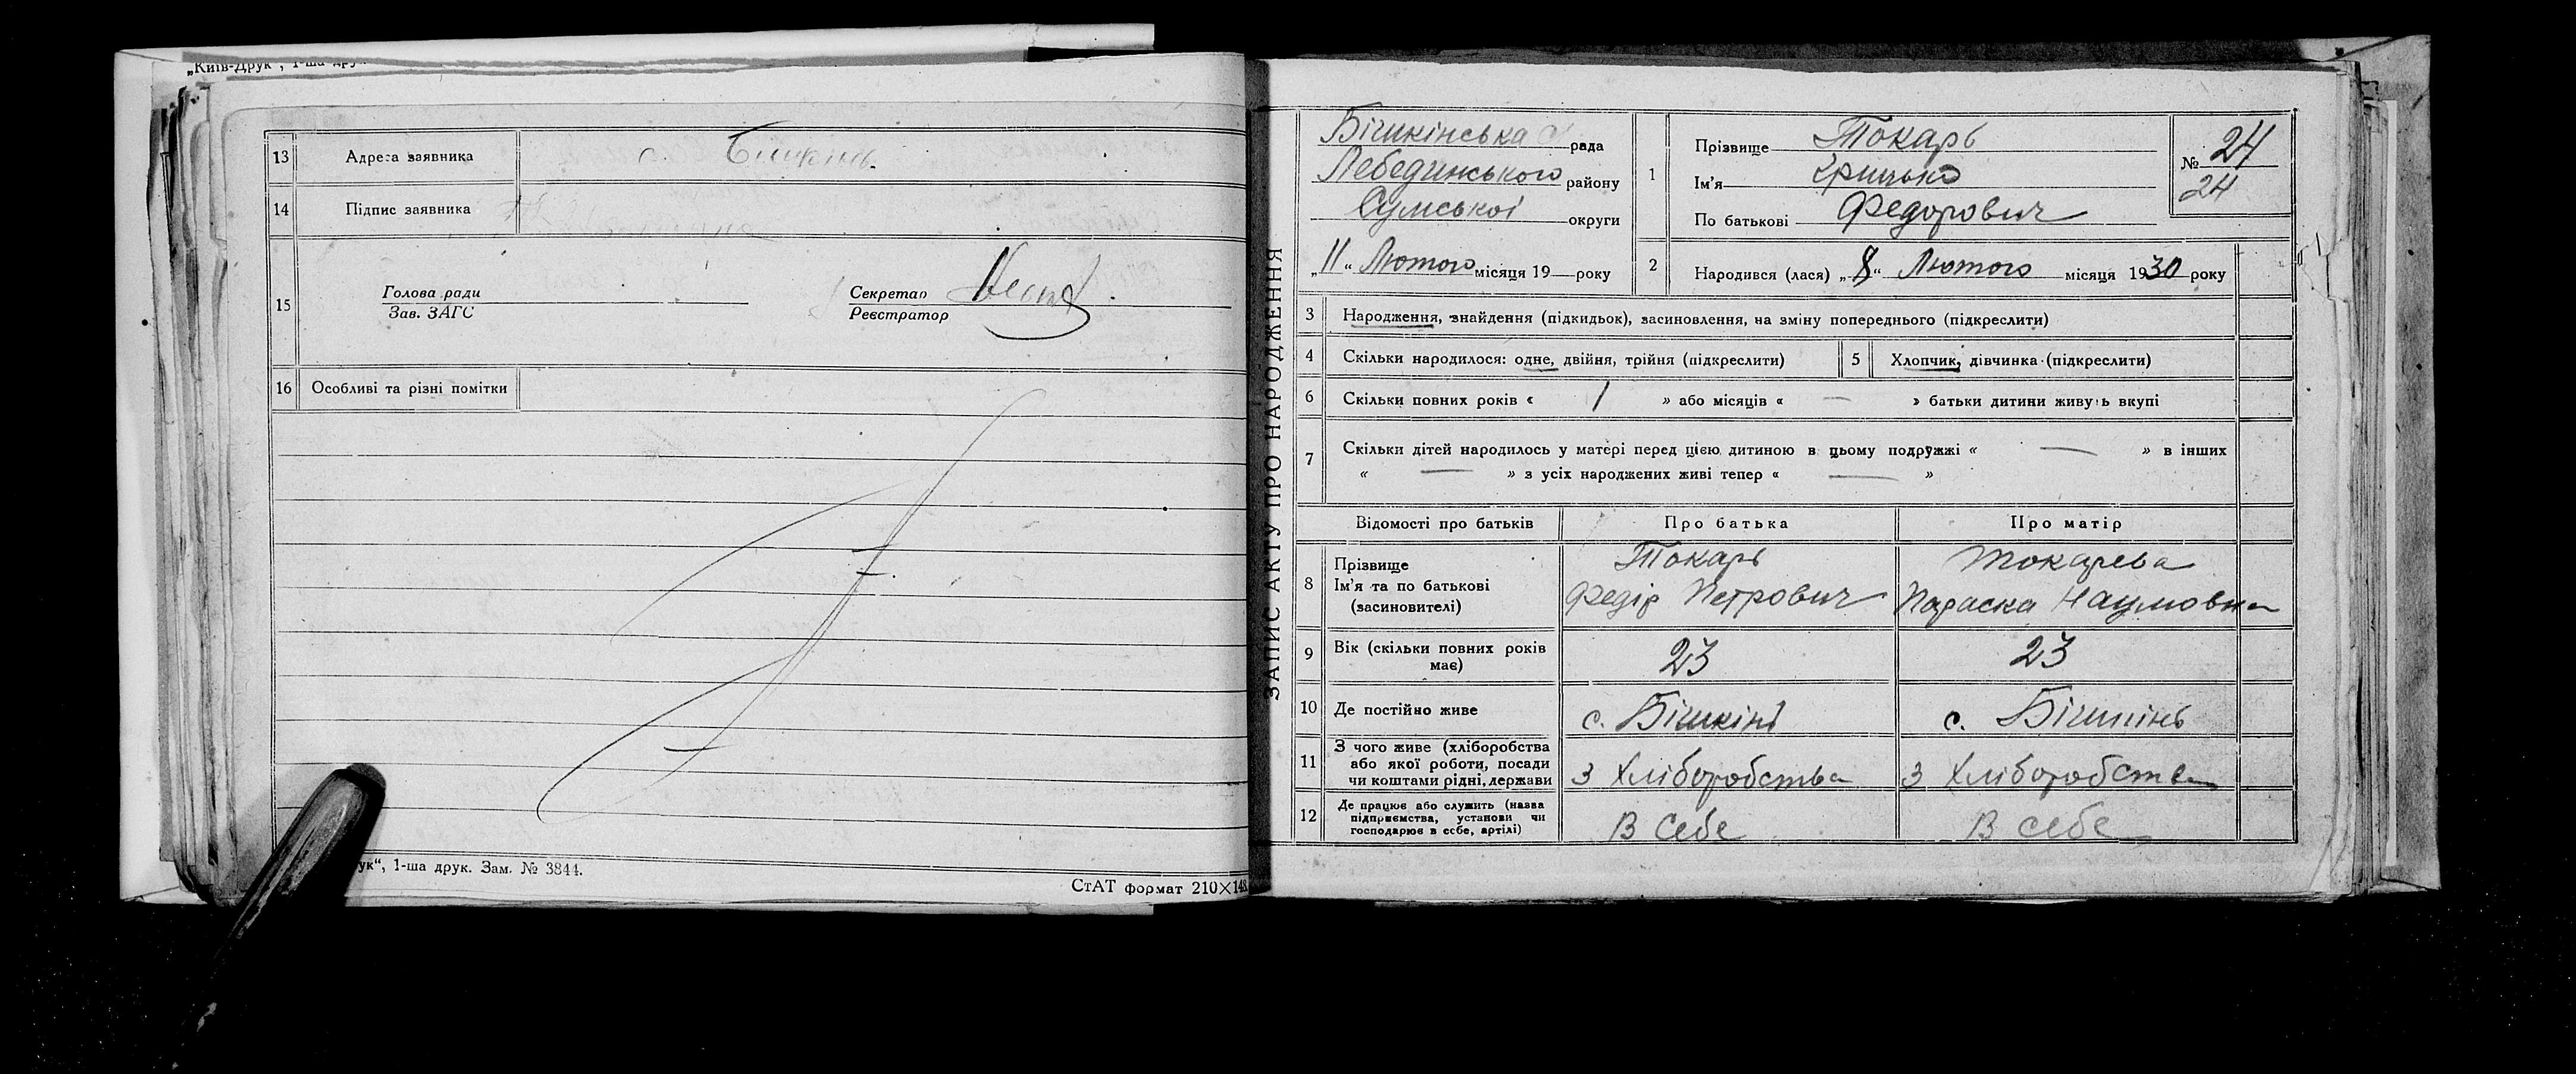 „Київ-Друк“, 1-ша друк.
13 Адреса заявника с. Бишкінь
14 Підпис заявника
15 Голова ради
Зав. ЗАГС
Секретар
Реєстратор
16 Особливі та різні помітки
ук“, 1-ша друк. Зам. № 3844.
СтАТ формат 210×148
ЗАПИС АКТУ ПРО НАРОДЖЕННЯ
Бішкінська рада
Лебединського району
Сумської округи
„11“ Лютого місяця 19 року
1 Прізвище Токарь
Ім’я Грицько
По батькові Федорович
№ 24
24
2 Народився (лася) „8“ Лютого місяця 1930 року
3 Народження, знайдення (підкидьок), засиновлення, на зміну попереднього (підкреслити)
4 Скільки народилося: одне, двійня, трійня (підкреслити) 5 Хлопчик, дівчинка (підкреслити)
6 Скільки повних років « 1 » або місяців « — » батьки дитини живуть вкупі
7 Скільки дітей народилось у матері перед цією дитиною в цьому подружжі « — » в інших
« — » з усіх народжених живі тепер « — »
Відомості про батьків Про батька Про матір
8 Прізвище Токарь Токарева
Ім’я та по батькові Федір Петрович Параска Наумовна
(засиновителі)
9 Вік (скільки повних років має) 23 23
10 Де постійно живе с. Бішкінь с. Бішкінь
11 З чого живе (хліборобства
або якої роботи, посади
чи коштами рідні, держави З Хліборобства З Хліборобства
12 Де працює або служить (назва
підприємства, установи чи
господарює в себе, артілі) В себе В себе